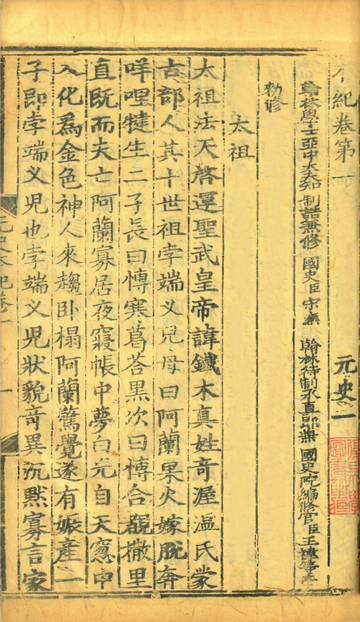 本紀卷第一
元史一
翰林學士亞中大夫知制誥兼修國史臣宋濂翰林待制承直郎兼國史院編修官臣王禕等奉
勑修
太祖
太祖法天啓運聖武皇帝諱鐵木真姓奇渥溫氏蒙
古部人其十世祖孛端义兒母曰阿蘭果火嫁脫奔
咩哩犍生二子長曰博寒葛荅黑次曰博合覩撒里
直既而夫亡阿蘭寡居夜寢帳中夢白元自天窓中
入化爲金色神人來趨卧榻阿蘭驚覺遂有娠產一
子即孛端义兒也孛端义兒狀貌奇異沉默寡言家